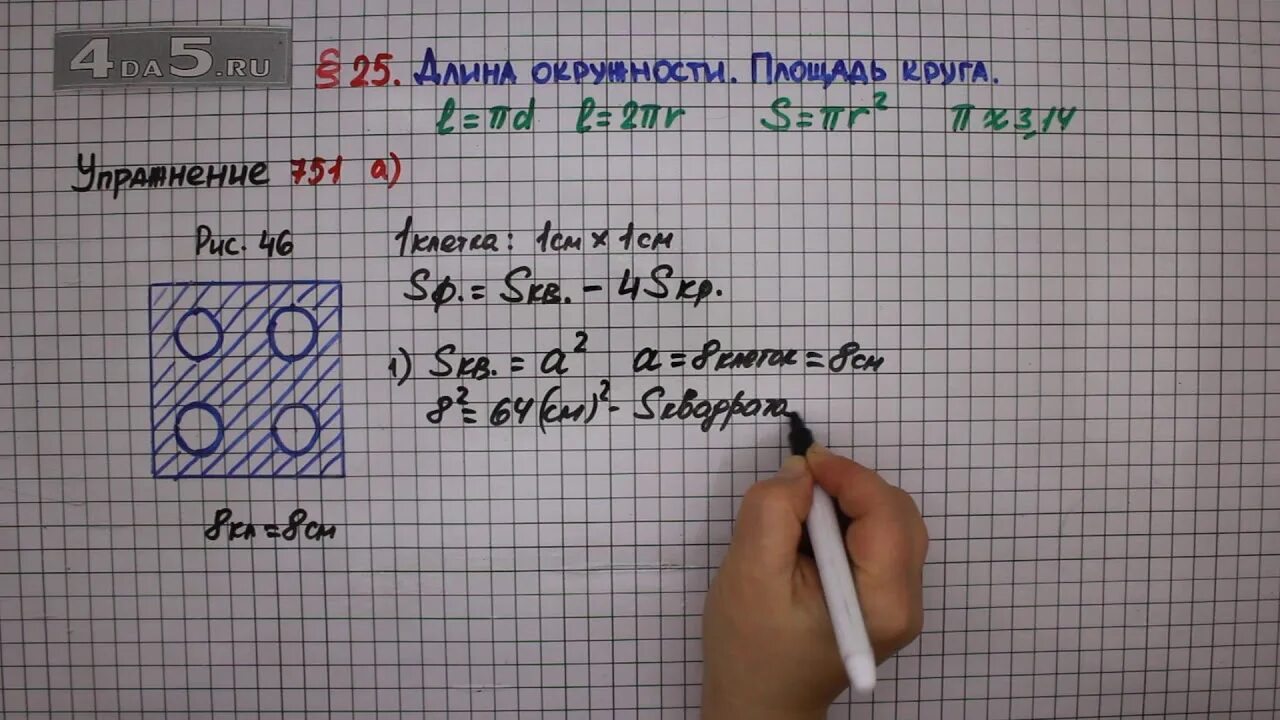 4DA5.RU
§ 25. Длина окружности. Площадь круга.
l = πd l = 2πr S = πr² π ≈ 3,14
Упражнение 751 а)
Рис. 46
1 клетка: 1см × 1см
Sф. = Sкв. - 4Sкр.
1) Sкв. = a² a = 8 клеток = 8см
8² = 64 (см)² - Sквадрата
8кл = 8см